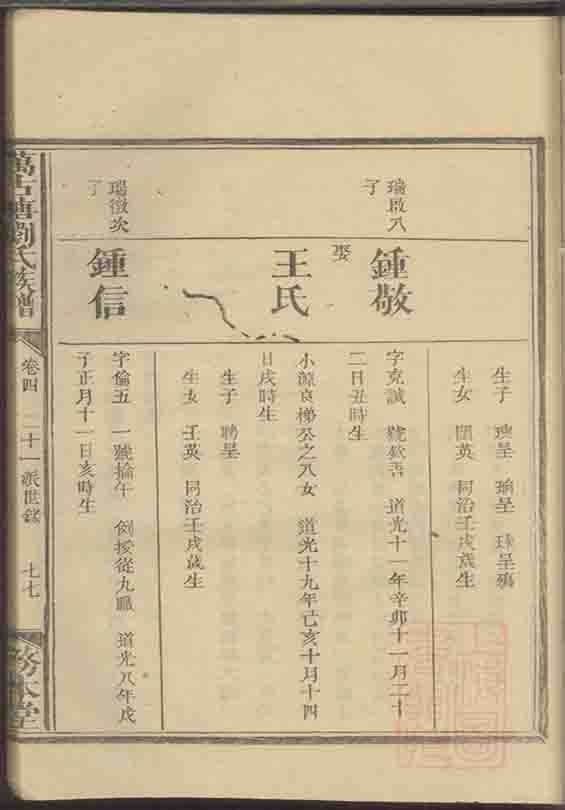 生子 瑛呈 瑜呈 珠呈殤
生女 閨英 同治壬戌歲生
瑞啟八
子
鍾敬
字克誠 號欽吾 道光十一年辛卯十一月二十
二日丑時生
娶
王氏
小源貞梯公之八女 道光十九年己亥十月十四
日戌時生
生子 聘呈
生女 壬英 同治壬戌歲生
瑞徵次
子
鍾信
字倫五 一號掄午 例授從九職 道光八年戊
子正月十一日亥時生
萬古塘劉氏族譜
卷四 二十一派世錄 七七
務本堂